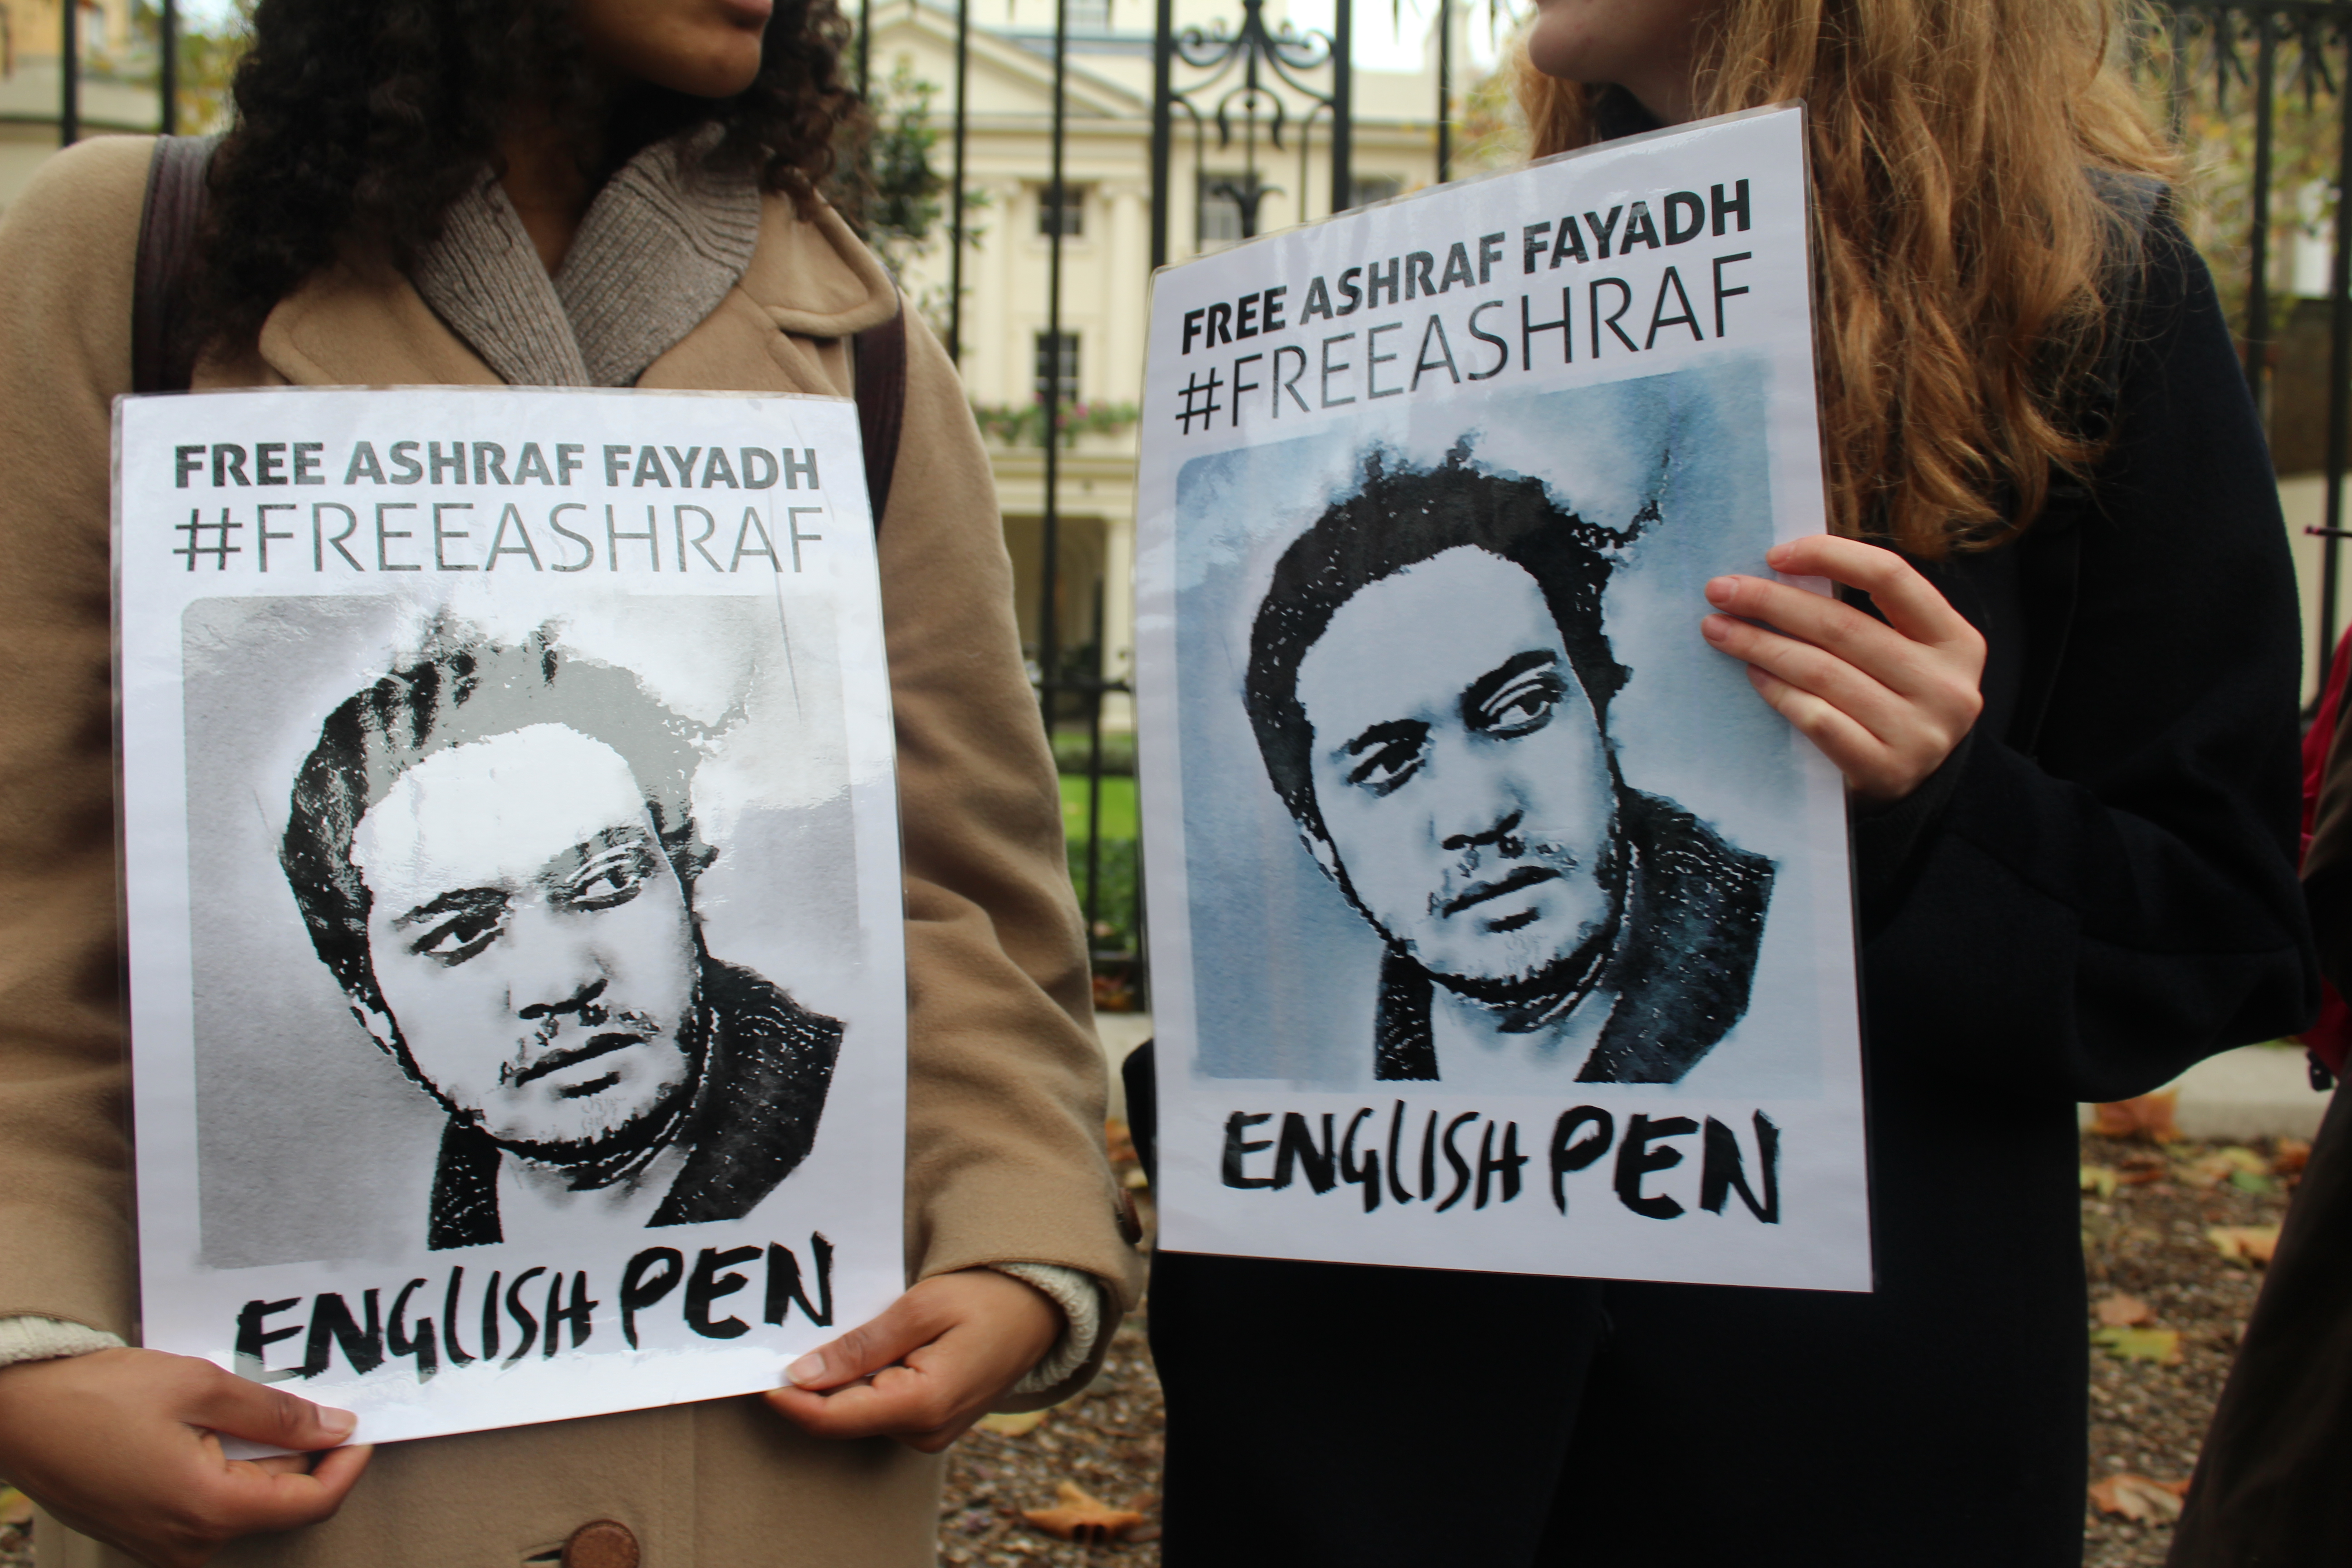 FREE ASHRAF FAYADH
#FREEASHRAF
ENGLISH PEN
FREE ASHRAF FAYADH
#FREEASHRAF
ENGLISH PEN